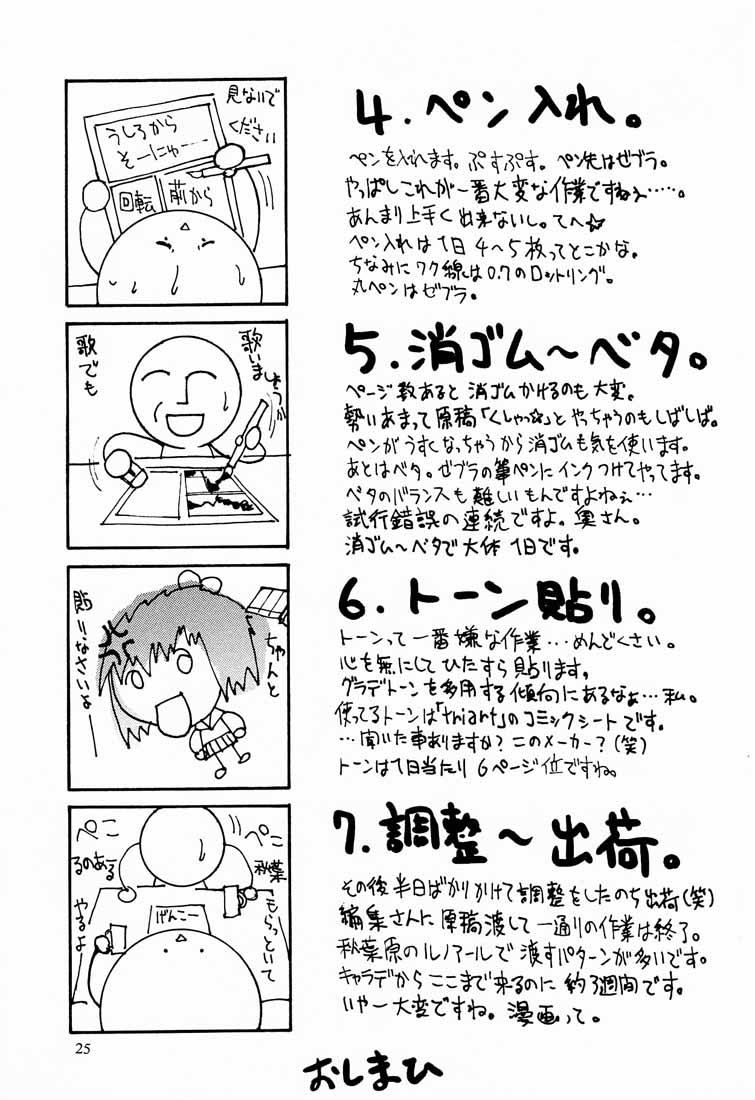 見ないで
ください
うしろから
そーにゅー……
回転
前から
4．ペン入れ。
ペンを入れます。ぷすぷす。ペン先はゼブラ。
やっぱしこれが一番大変な作業ですねぇ……。
あんまり上手く出来ないし。てへ☆
ペン入れは1日4～5枚ってとこかな。
ちなみにワク線は0.7のロットリング。
丸ペンはゼブラ。
歌でも
歌いましょうか
5．消ゴム～ベタ。
ページ数あると消ゴムかけるのも大変。
勢いあまって原稿「くしゃっ☆」とやっちゃうのもしばしば。
ペンがうすくなっちゃうから消ゴムも気を使います。
あとはベタ。ゼブラの筆ペンにインクつけてやってます。
ベタのバランスも難しいもんですよねぇ…
試行錯誤の連続ですよ。奥さん。
消ゴム～ベタで大体1日です。
ちゃんと
貼りなさいよ――
6．トーン貼り。
トーンって一番嫌な作業…めんどくさい。
心を無にしてひたすら貼ります。
グラデトーンを多用する傾向にあるなぁ…私。
使ってるトーンは「triart」のコミックシートです。
…聞いた事ありますか？このメーカー？（笑）
トーンは1日当たり6ページ位ですね。
ぺこ
ぺこ
秋葉
るのある
もらっといて
やるよ
げんこー
7．調整～出荷。
その後半日ばかりかけて調整をしたのち出荷（笑）
編集さんに原稿渡して一通りの作業は終了。
秋葉原のルノアールで渡すパターンが多いです。
キャラデからここまで来るのに約3週間です。
いやー大変ですね。漫画って。
25
おしまひ